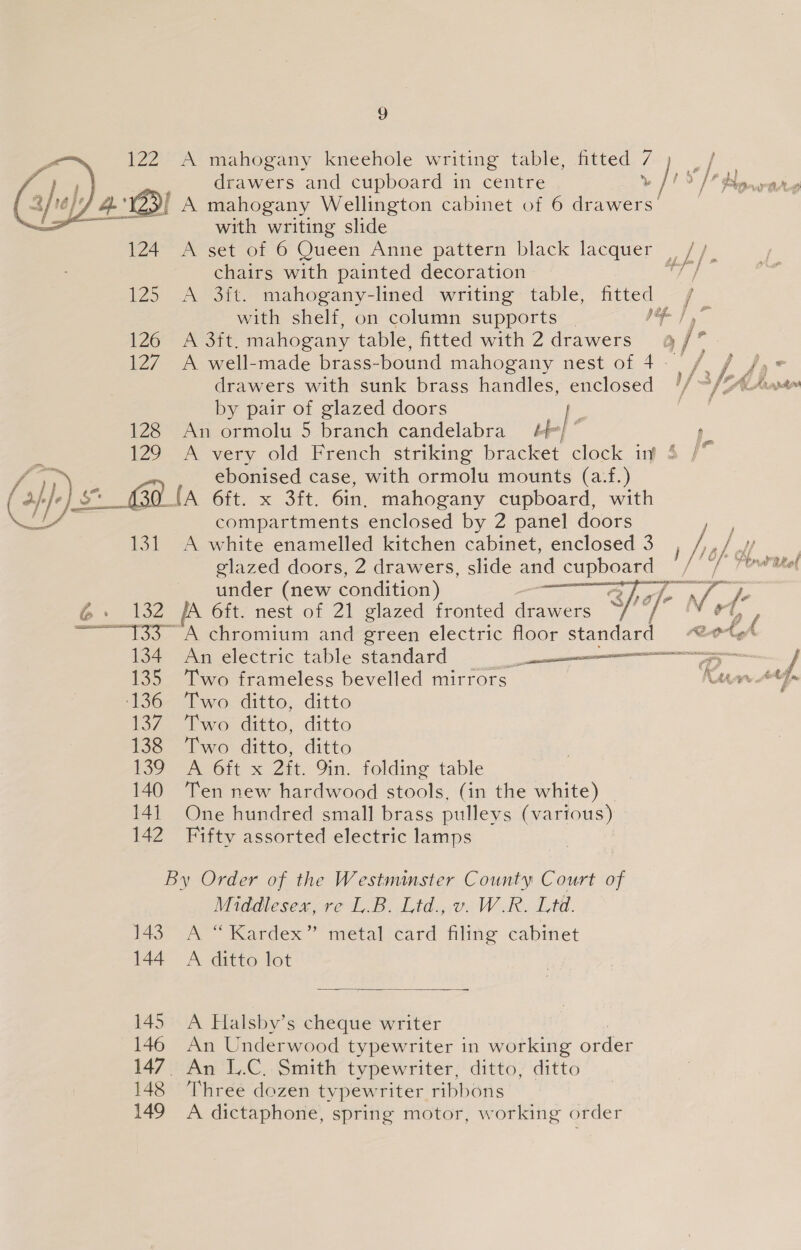 9
122 A mahogany kneehole writing table, fitted 7
drawers and cupboard in centre
123 A mahogany Wellington cabinet of 6 drawers
with writing slide
124 A set of 6 Queen Anne pattern black lacquer
chairs with painted decoration
125 A 3ft. mahogany-lined writing table, fitted
with shelf, on column supports
126 A 3ft. mahogany table, fitted with 2 drawers
127 A well-made brass-bound mahogany nest of 4
drawers with sunk brass handles, enclosed
by pair of glazed doors
128 An ormolu 5 branch candelabra
129 A very old French striking bracket clock in
ebonised case, with ormolu mounts (a.f.)
130 A 6ft. x 3ft. 6in. mahogany cupboard, with
compartments enclosed by 2 panel doors
131 A white enamelled kitchen cabinet, enclosed 3
glazed doors, 2 drawers, slide and cupboard
under (new condition)
132 A 6ft. nest of 21 glazed fronted drawers
133 A chromium and green electric floor standard
134 An electric table standard
135 Two frameless bevelled mirrors
136 Two ditto, ditto
137 Two ditto, ditto
138 Two ditto, ditto
139 A 6ft x 2ft. 9in. folding table
140 Ten new hardwood stools, (in the white)
141 One hundred small brass pulleys (various)
142 Fifty assorted electric lamps
By Order of the Westminster County Court of
Middlesex, re L.B. Ltd., v. W.R. Ltd.
143 A “Kardex” metal card filing cabinet
144 A ditto lot
145 A Halsby's cheque writer
146 An Underwood typewriter in working order
147. An L.C. Smith typewriter, ditto, ditto
148 Three dozen typewriter ribbons
149 A dictaphone, spring motor, working order